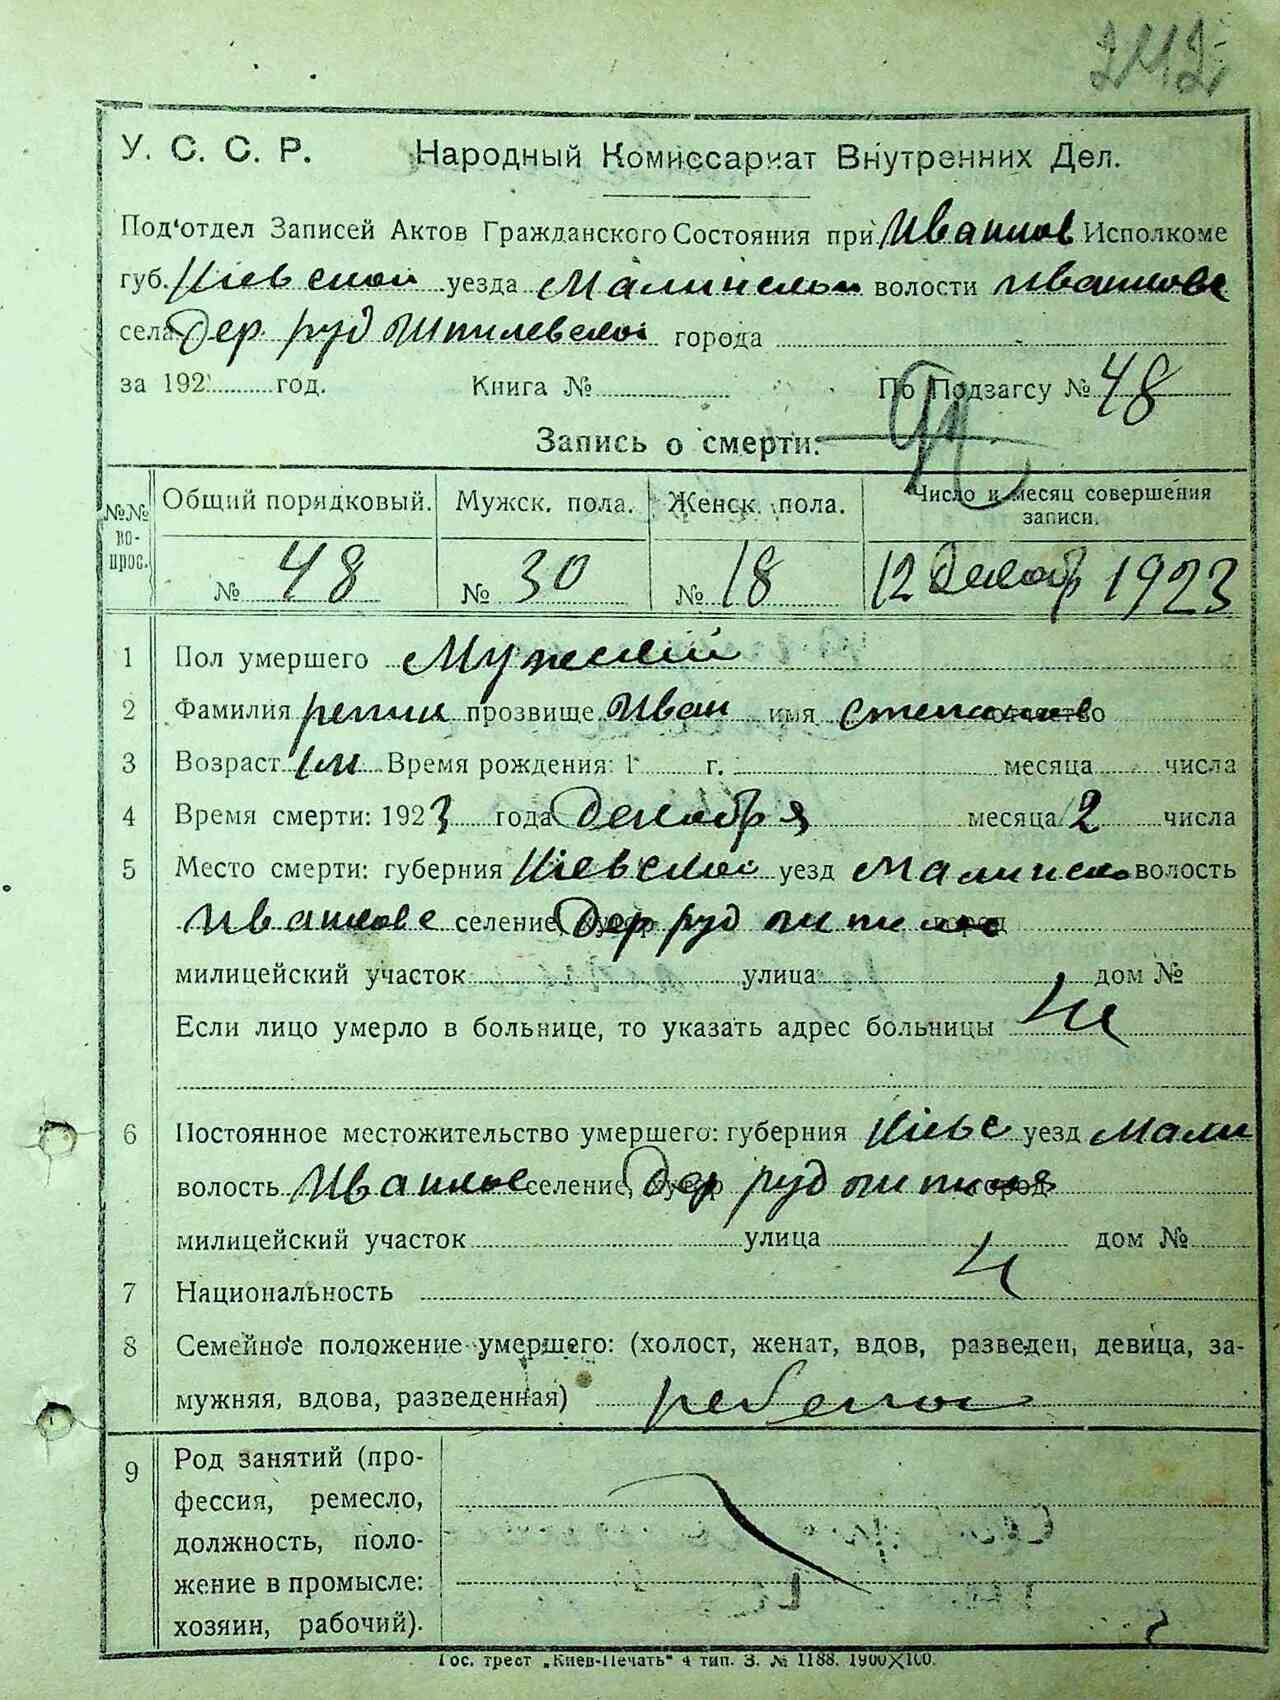 242
У. С. С. Р. Народный Комиссариат Внутренних Дел.
Под‘отдел Записей Актов Гражданского Состояния при Ивашков Исполкоме
губ. Киевской уезда Малинском волости Ивашкове
села Дер руд Шпилевской города
за 192 год. Книга № По Подзагсу № 48
Запись о смерти.
№№ во-прос. Общий порядковый. Мужск. пола. Женск. пола. Число и месяц совершения записи.
№ 48 № 30 № 18 12 Декаб 1923
1 Пол умершего Мужский
2 Фамилия прозвище Иван имя отчество
3 Возраст Время рождения: 1 г. месяца числа
4 Время смерти: 1923 года Декабря месяца 2 числа
5 Место смерти: губерния Киевской уезд Малинско волость
Ивашкове селение, хутор Дер руд шпиле город
милицейский участок улица дом №
Если лицо умерло в больнице, то указать адрес больницы
6 Постоянное местожительство умершего: губерния Киевс уезд Мали
волость Ивашкове селение, хутор Дер руд шпиля город
милицейский участок улица дом №
7 Национальность
8 Семейное положение умершего: (холост, женат, вдов, разведен, девица, за-
мужняя, вдова, разведенная) ребенок
9 Род занятий (про-
фессия, ремесло,
должность, поло-
жение в промысле:
хозяин, рабочий).
Гос. трест „Киев-Печать“ 4 тип. З. № 1188. 1900×100.